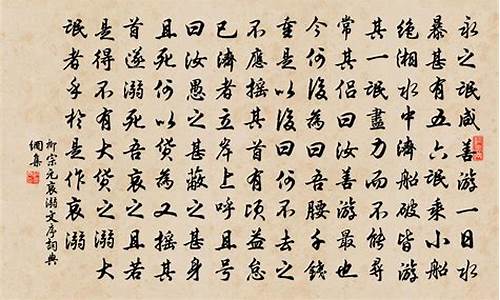 永之氓咸善游一日水
暴甚有五六氓乘小船
絕湘水中濟船破皆游
其一氓盡力而不能尋
常其侶曰汝善游最也
今何後為曰吾腰千錢
重是以後曰何不去之
不應搖其首有頃益怠
已濟者立岸上呼且號
曰汝愚之甚蔽之甚身
且死何以貨為又搖其
首遂溺死吾哀之且若
是得不有大貨之溺大
氓者乎於是作哀溺
柳宗元哀溺文序詞典
網集